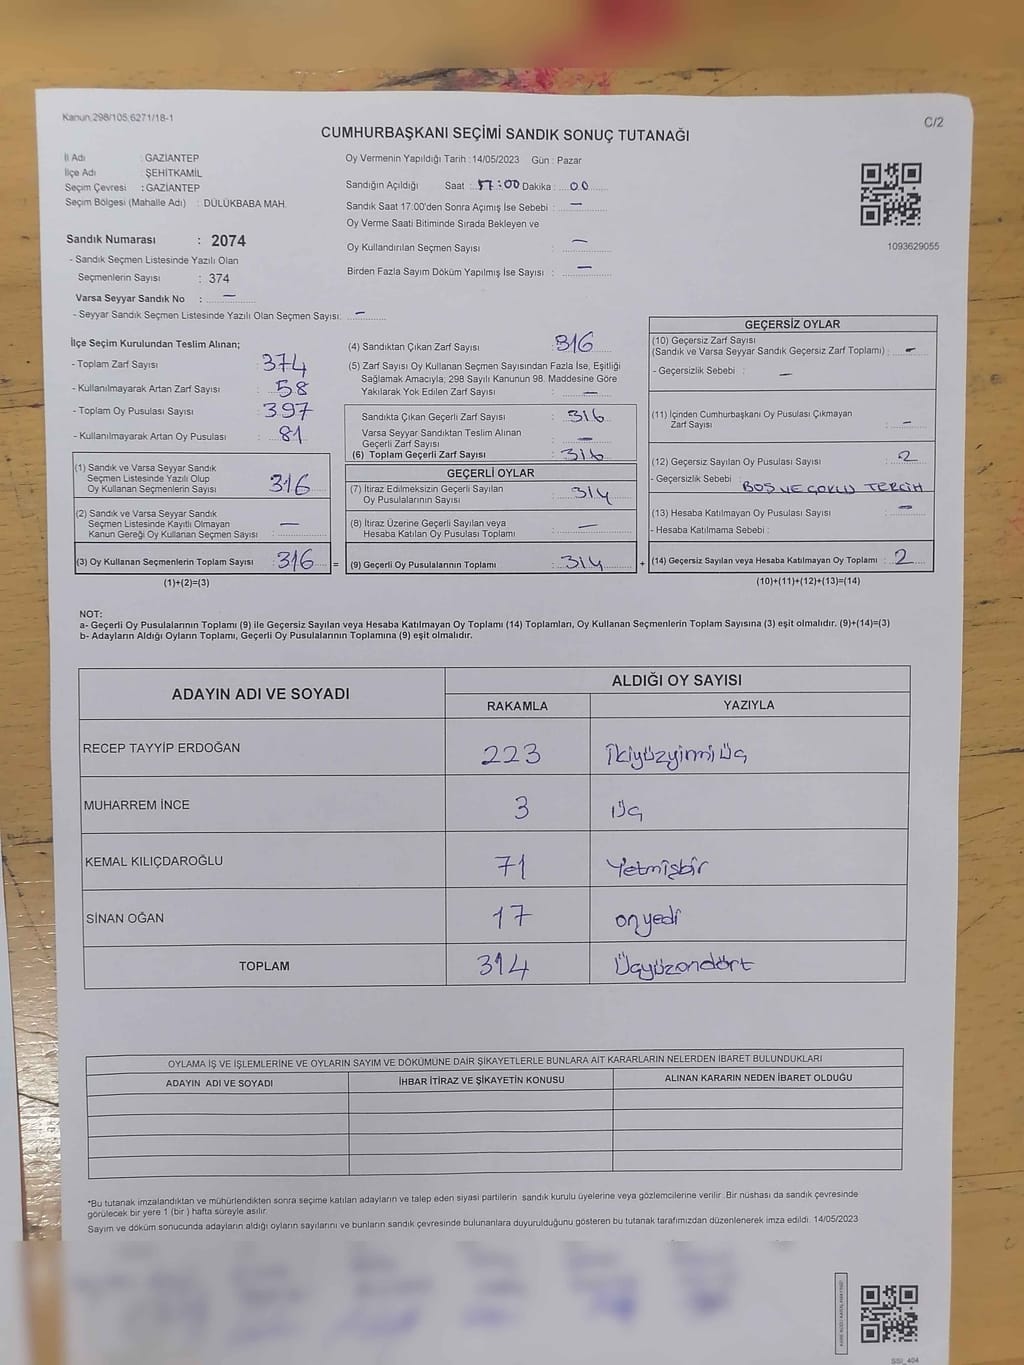 Kanun,298/105,6271/18-1
C/2
CUMHURBAŞKANI SEÇİMİ SANDIK SONUÇ TUTANAĞI
İl Adı : GAZİANTEP
İlçe Adı : ŞEHİTKAMİL
Seçim Çevresi : GAZİANTEP
Seçim Bölgesi (Mahalle Adı) : DÜLÜKBABA MAH.
Sandık Numarası : 2074
- Sandık Seçmen Listesinde Yazılı Olan
Seçmenlerin Sayısı : 374
Varsa Seyyar Sandık No : —
- Seyyar Sandık Seçmen Listesinde Yazılı Olan Seçmen Sayısı: —
Oy Vermenin Yapıldığı Tarih : 14/05/2023 Gün : Pazar
Sandığın Açıldığı Saat : 17:00 Dakika : 00
Sandık Saat 17:00'den Sonra Açımış İse Sebebi : —
Oy Verme Saati Bitiminde Sırada Bekleyen ve
Oy Kullandırılan Seçmen Sayısı : —
Birden Fazla Sayım Döküm Yapılmış İse Sayısı : —
1093629055
İlçe Seçim Kurulundan Teslim Alınan;
- Toplam Zarf Sayısı : 374
- Kullanılmayarak Artan Zarf Sayısı : 58
- Toplam Oy Pusulası Sayısı : 397
- Kullanılmayarak Artan Oy Pusulası : 81
(1) Sandık ve Varsa Seyyar Sandık
Seçmen Listesinde Yazılı Olup
Oy Kullanan Seçmenlerin Sayısı : 316
(2) Sandık ve Varsa Seyyar Sandık
Seçmen Listesinde Kayıtlı Olmayan
Kanun Gereği Oy Kullanan Seçmen Sayısı : —
(3) Oy Kullanan Seçmenlerin Toplam Sayısı : 316 =
(1)+(2)=(3)
(4) Sandıktan Çıkan Zarf Sayısı : 316
(5) Zarf Sayısı Oy Kullanan Seçmen Sayısından Fazla İse, Eşitliği
Sağlamak Amacıyla; 298 Sayılı Kanunun 98. Maddesine Göre
Yakılarak Yok Edilen Zarf Sayısı : —
Sandıkta Çıkan Geçerli Zarf Sayısı : 316
Varsa Seyyar Sandıktan Teslim Alınan
Geçerli Zarf Sayısı : —
(6) Toplam Geçerli Zarf Sayısı : 316
GEÇERLİ OYLAR
(7) İtiraz Edilmeksizin Geçerli Sayılan
Oy Pusulalarının Sayısı : 314
(8) İtiraz Üzerine Geçerli Sayılan veya
Hesaba Katılan Oy Pusulası Toplamı : —
(9) Geçerli Oy Pusulalarının Toplamı : 314 +
GEÇERSİZ OYLAR
(10) Geçersiz Zarf Sayısı
(Sandık ve Varsa Seyyar Sandık Geçersiz Zarf Toplamı) : —
- Geçersizlik Sebebi : —
(11) İçinden Cumhurbaşkanı Oy Pusulası Çıkmayan
Zarf Sayısı : —
(12) Geçersiz Sayılan Oy Pusulası Sayısı : 2
- Geçersizlik Sebebi : BOŞ VE ÇOKLU TERCİH
(13) Hesaba Katılmayan Oy Pusulası Sayısı : —
- Hesaba Katılmama Sebebi :
(14) Geçersiz Sayılan veya Hesaba Katılmayan Oy Toplamı : 2
(10)+(11)+(12)+(13)=(14)
NOT:
a- Geçerli Oy Pusulalarının Toplamı (9) ile Geçersiz Sayılan veya Hesaba Katılmayan Oy Toplamı (14) Toplamları, Oy Kullanan Seçmenlerin Toplam Sayısına (3) eşit olmalıdır. (9)+(14)=(3)
b- Adayların Aldığı Oyların Toplamı, Geçerli Oy Pusulalarının Toplamına (9) eşit olmalıdır.
ADAYIN ADI VE SOYADI
ALDIĞI OY SAYISI
RAKAMLA YAZIYLA
RECEP TAYYİP ERDOĞAN 223 İkiyüzyirmi üç
MUHARREM İNCE 3 üç
KEMAL KILIÇDAROĞLU 71 Yetmişbir
SİNAN OĞAN 17 onyedi
TOPLAM 314 Üçyüzondört
OYLAMA İŞ VE İŞLEMLERİNE VE OYLARIN SAYIM VE DÖKÜMÜNE DAİR ŞİKAYETLERLE BUNLARA AİT KARARLARIN NELERDEN İBARET BULUNDUKLARI
ADAYIN ADI VE SOYADI İHBAR İTİRAZ VE ŞİKAYETİN KONUSU ALINAN KARARIN NEDEN İBARET OLDUĞU
*Bu tutanak imzalandıktan ve mühürlendikten sonra seçime katılan adayların ve talep eden siyasi partilerin sandık kurulu üyelerine veya gözlemcilerine verilir. Bir nüshası da sandık çevresinde
görülecek bir yere 1 (bir) hafta süreyle asılır.
Sayım ve döküm sonucunda adayların aldığı oyların sayılarını ve bunların sandık çevresinde bulunanlara duyurulduğunu gösteren bu tutanak tarafımızdan düzenlenerek imza edildi. 14/05/2023
SSI_404